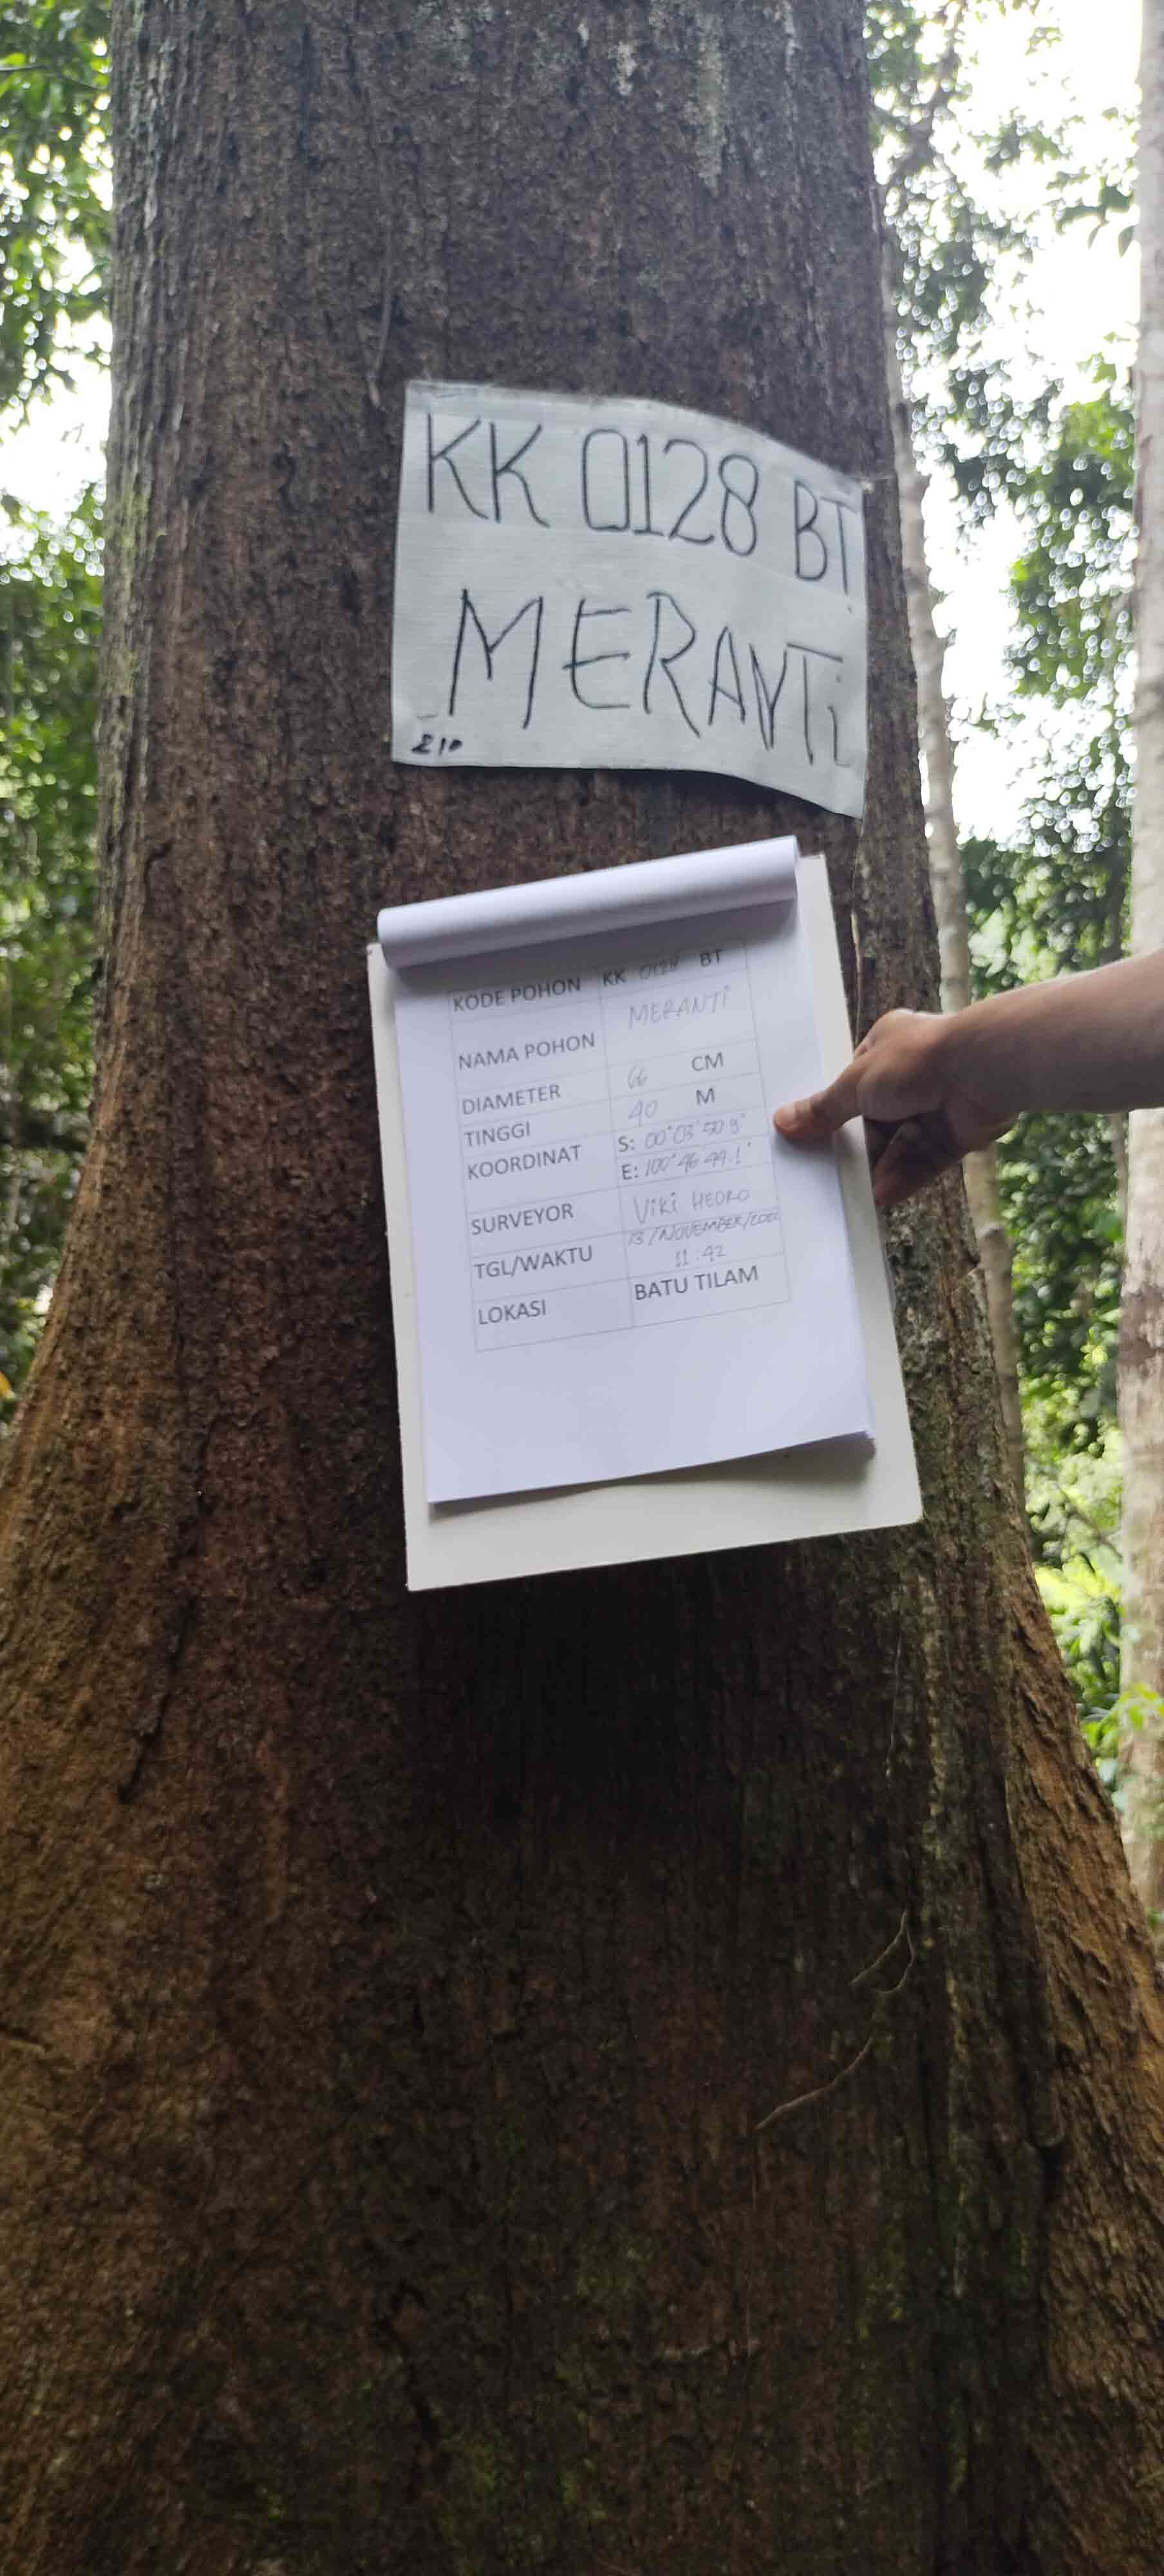 KK 0128 BT
MERANTi
210
KODE POHON KK 0128 BT
NAMA POHON MERANTi
DIAMETER 66 CM
TINGGI 40 M
KOORDINAT S: 00°03'50.9"
E: 100°46'44.1"
SURVEYOR ViKi HEDRO
TGL/WAKTU 13/NOVEMBER/
11:42
LOKASI BATU TILAM